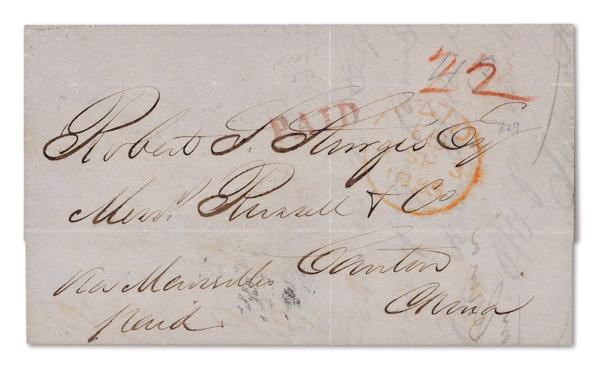 22
PAID
PAID
Robert S. Sturgis Esq
Messrs Russell & Co
Canton
China
via Marseilles
paid.